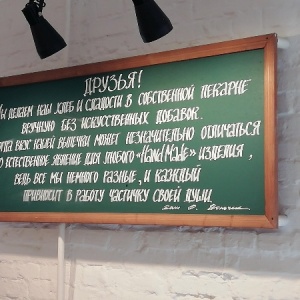 ДРУЗЬЯ!
Мы делаем наш хлеб и сладости в собственной пекарне
вручную без искусственных добавок.
вкус нашей выпечки может незначительно отличаться
естественное явление для любого «HandMade» изделия,
ведь все мы немного разные, и каждый
привносит в работу частичку своей души.